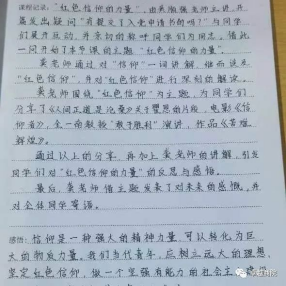 课程记录："红色信仰的力量"，由吴顺强老师主讲，并
首先出疑问"有提交了入党申请书的吗？"与同学
们展开互动，并亲切的称呼同学们为同志，借此
一同开始了本节课的主题"红色信仰的力量"。
吴老师通过对"信仰"一词讲解，继而说是
"红色信仰"，并对"红色信仰"进行深刻的解说。
吴老师围绕"红色信仰"为主题，为同学们
分享了《人间正道是沧桑》关于瞿恩的片段，电影《信
仰者》，金一南教授"敢于胜利"演讲，作品《苦难
辉煌》。
通过以上的分享，再加上吴老师的讲解，引发
同学们对"红色信仰的力量"的反思与感悟。
最后，吴老师借主题发表了对未来的感慨，并
对全体同学寄语。
感悟：信仰是一种强大的精神力量，可以转化为巨
大的物质力量，我们当代青年，应树立远大的理想，
坚定红色信仰，做一个坚强有能力的社会主义